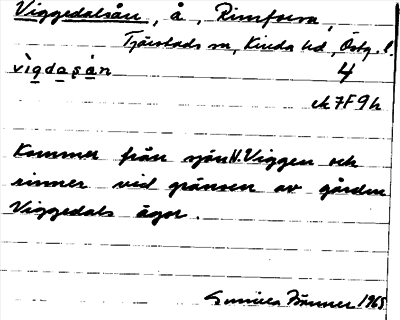 Viggedalsån, å, Rimforsa,
Tjärstads sn, Kinda hd, Östg. l.
vìgdaṣån 4
ek 7F9h
Kommer från sjön N. Viggen och
rinner vid gränsen av gården
Viggedals ägor.
Gunilla Fränner 1965